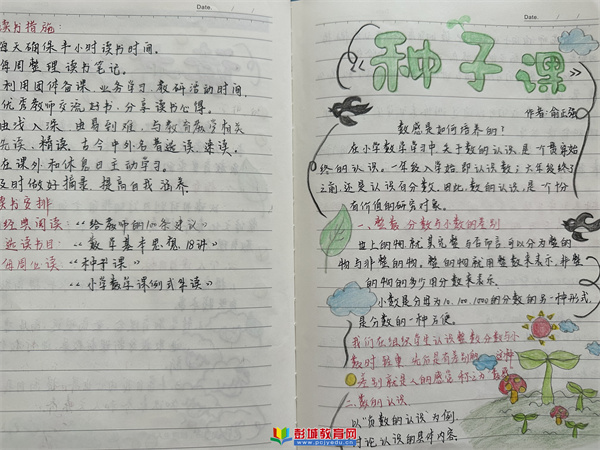 读书措施:
每天确保半小时读书时间。
每周整理读书笔记。
利用团体备课、业务学习、教研活动时间,
优秀教师交流好书,分享读书心得。
由浅入深,由易到难,与教育教学相关
先读,精读,古今中外名著选读、速读。
在课外和休息日主动学习。
及时做好摘录,提高自我涵养。
读书安排
经典阅读:“给教师的100条建议”
选读书目:“数学基本思想18讲”
每周必读:“种子课”
“小学数学课例式集读”
Date.
Date.
《种子课》
作者:俞正强
数感是如何培养的?
在小学数学学习中,关于数的认识是个贯穿始
终的认识。一年级入学始即认识数;六年级终了
之前,还是认识百分数。因此,数的认识,是个十分
有价值的研究对象。
一、整数、分数与小数的差别
世上的物就其完整与否而言可以分为整的
物与非整的物。整的物就用整数来表示,非整
的物的多少用分数来表示。
小数是分母为10.100.1000的分数的另一种形式,
是分数的一种方便。
我们在组织学生认识整数分数与小
数时
差别就是人的感觉,称之为“数感”
二、数的认识
以“负数的认识”为例,
讨论认识的具体内容。
彭城教育网
www.pcjyedu.cn